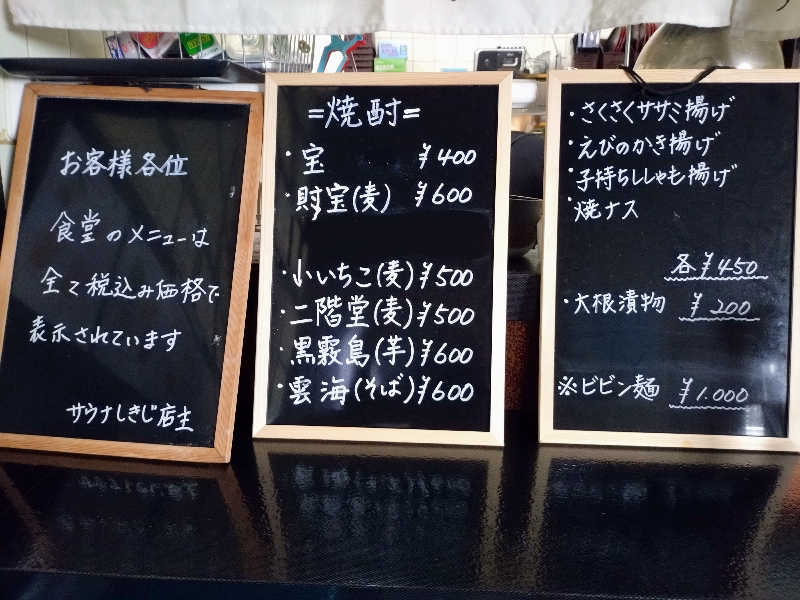 お客様各位
食堂のメニューは
全て税込み価格で
表示されています
サウナしきじ店主
=焼酎=
・宝 ¥400
・財宝(麦) ¥600
・いいちこ(麦)¥500
・二階堂(麦)¥500
・黒霧島(芋)¥600
・雲海(そば)¥600
・さくさくササミ揚げ
・えびのかき揚げ
・子持ちししゃも揚げ
・焼ナス
各¥450
・大根漬物 ¥200
※ビビン麺 ¥1.000